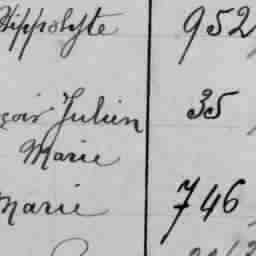 Hippolyte 952
Julien 35
Marie
Marie 746